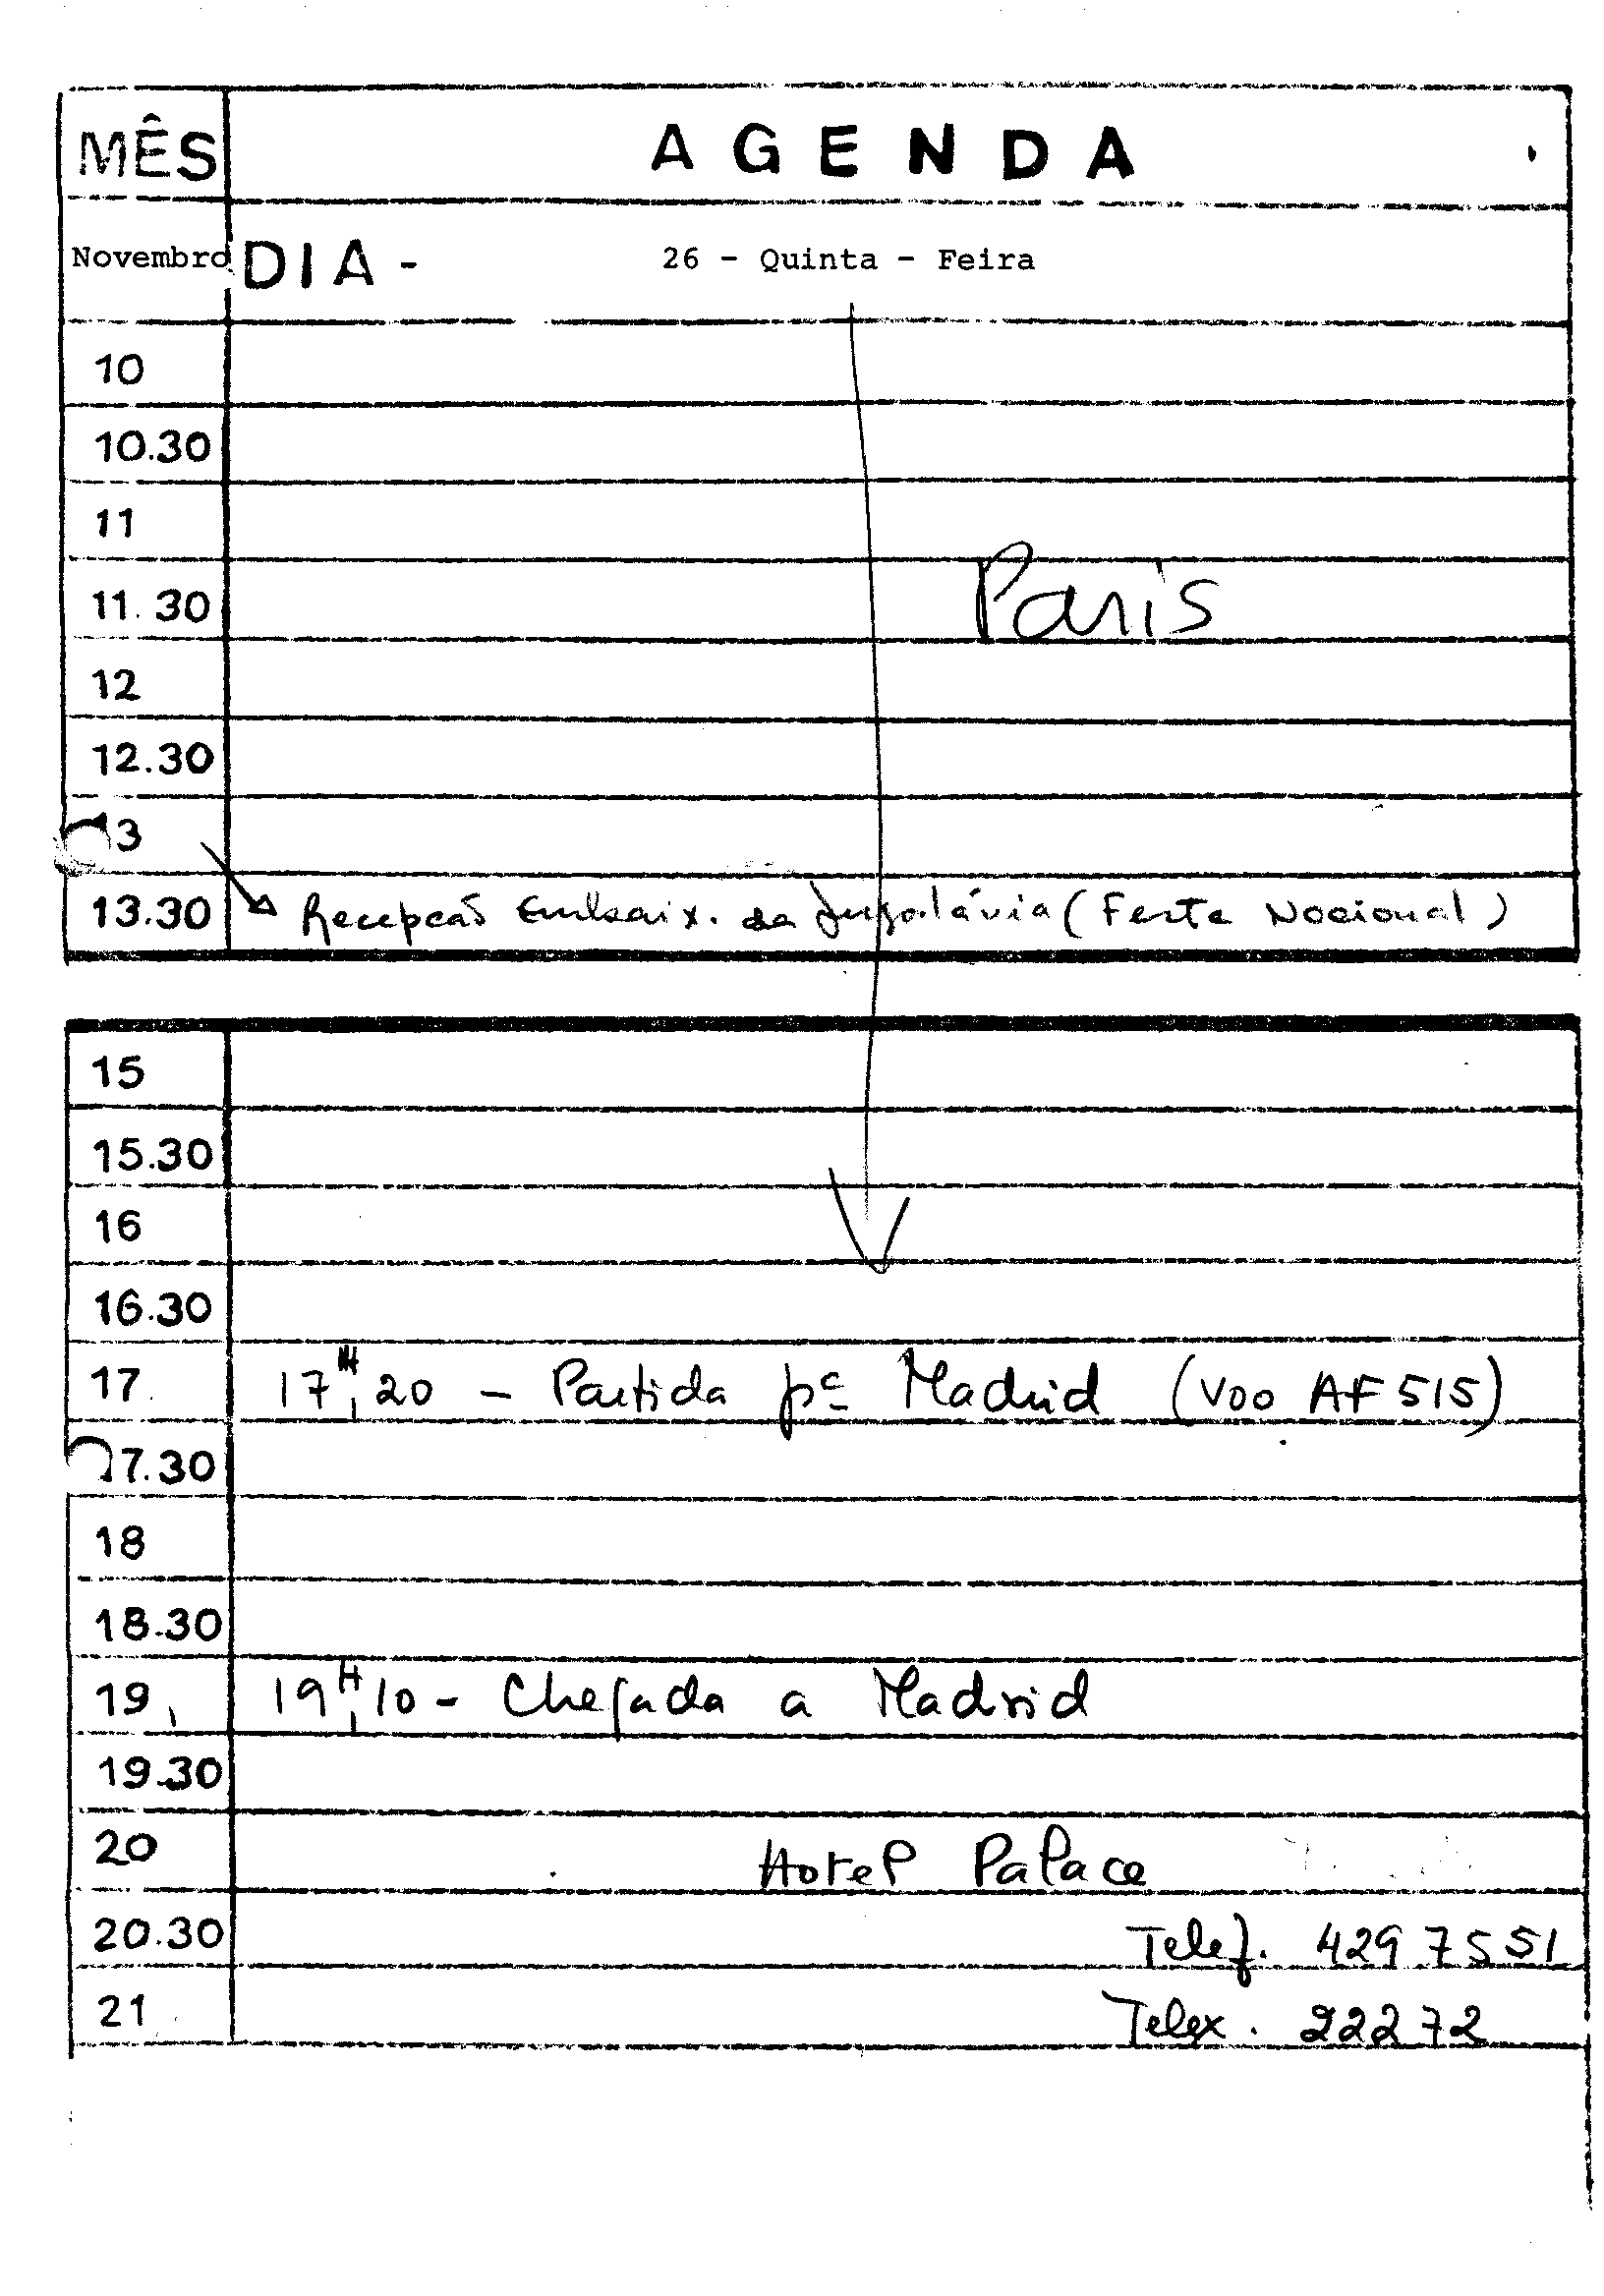 MÊS AGENDA
Novembro DIA - 26 - Quinta - Feira
10
10.30
11
11.30 Paris
12
12.30
13
13.30 Recepção Embaix. da Jugoslávia (Festa Nacional)
15
15.30
16
16.30
17 17H,20 - Partida pª Madrid (Voo AF 515)
17.30
18
18.30
19 19H,10 - Chegada a Madrid
19.30
20 Hotel Palace
20.30 Telef. 429 7551
21 Telex. 22272